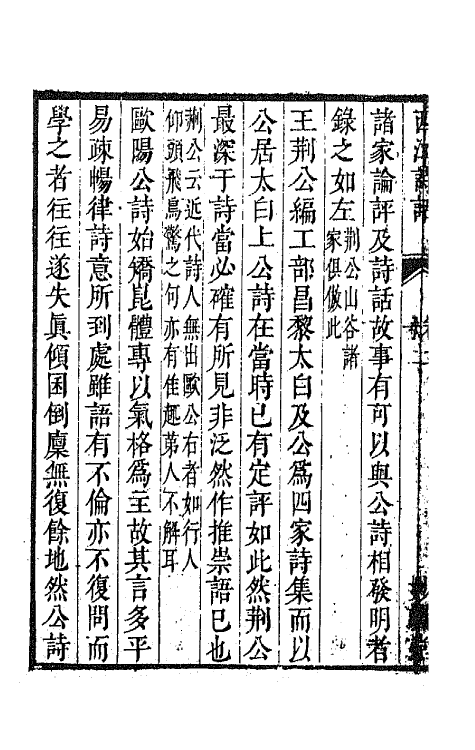 諸家論評及詩話故事有可以與公詩相發明者
錄之如左荆公山谷諸家俱倣此
王荆公編工部昌黎太白及公爲四家詩集而以
公居太白上公詩在當時已有定評如此然荆公
最深于詩當必確有所見非泛然作推崇語已也
荆公云近代詩人無出歐公右者如行人
仰頭飛鳥驚之句亦有佳趣第人不解耳
歐陽公詩始矯崑體專以氣格爲主故其言多平
易疎暢律詩意所到處雖語有不倫亦不復問而
學之者往往遂失眞傾囷倒廩無復餘地然公詩